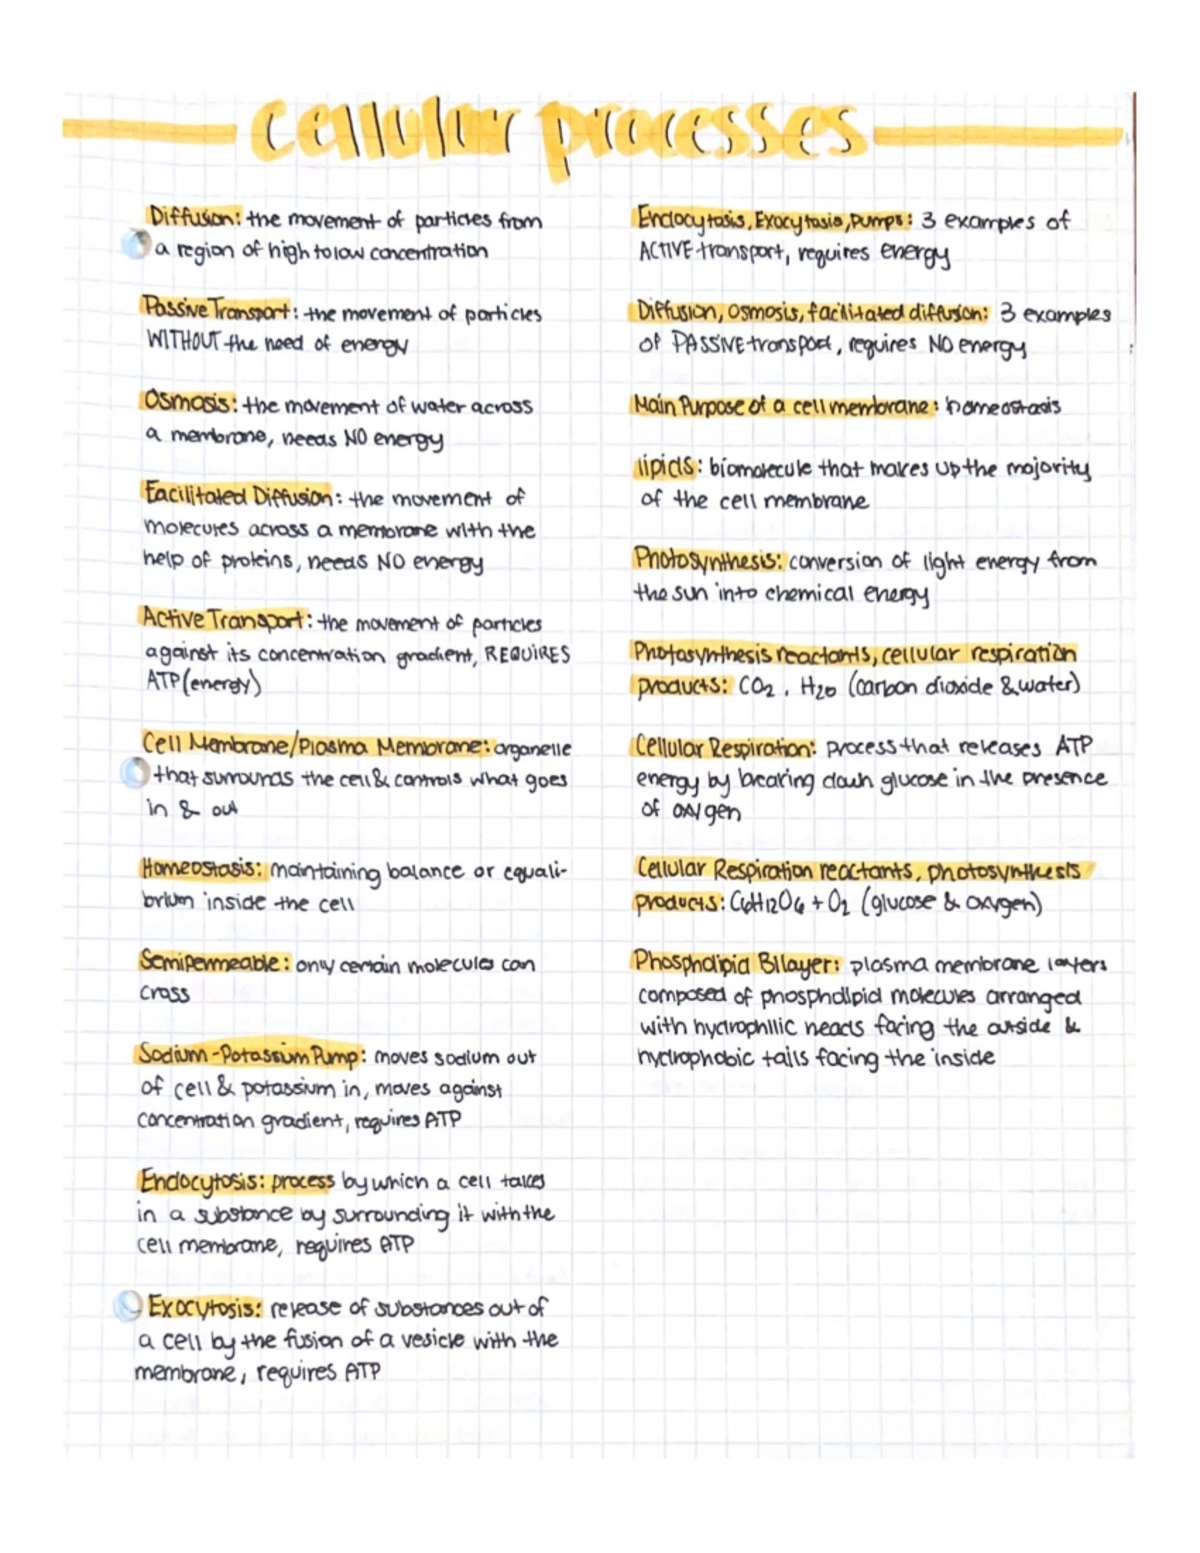 cellular processes
Diffusion: the movement of particles from
a region of high to low concentration
Passive Transport: the movement of particles
WITHOUT the need of energy
Osmosis: the movement of water across
a membrane, needs NO energy
Facilitated Diffusion: the movement of
molecules across a membrane with the
help of proteins, needs NO energy
Active Transport: the movement of particles
against its concentration gradient, REQUIRES
ATP (energy)
Cell Membrane/Plasma Membrane: organelle
that surrounds the cell & controls what goes
in & out
Homeostasis: maintaining balance or equali-
brium inside the cell
Semipermeable: only certain molecules can
cross
Sodium-Potassium Pump: moves sodium out
of cell & potassium in, moves against
concentration gradient, requires ATP
Endocytosis: process by which a cell takes
in a substance by surrounding it with the
cell membrane, requires ATP
Exocytosis: release of substances out of
a cell by the fusion of a vesicle with the
membrane, requires ATP
Endocytosis, Exocytosis, Pumps: 3 examples of
ACTIVE transport, requires energy
Diffusion, osmosis, facilitated diffusion: 3 examples
of PASSIVE transport, requires NO energy
Main Purpose of a cell membrane: homeostasis
lipids: biomolecule that makes up the majority
of the cell membrane
Photosynthesis: conversion of light energy from
the sun into chemical energy
Photosynthesis reactants, cellular respiration
products: CO2, H2O (carbon dioxide & water)
Cellular Respiration: process that releases ATP
energy by breaking down glucose in the presence
of oxygen
Cellular Respiration reactants, photosynthesis
products: C6H12O6 + O2 (glucose & oxygen)
Phospholipid Bilayer: plasma membrane layers
composed of phospholipid molecules arranged
with hydrophilic heads facing the outside &
hydrophobic tails facing the inside